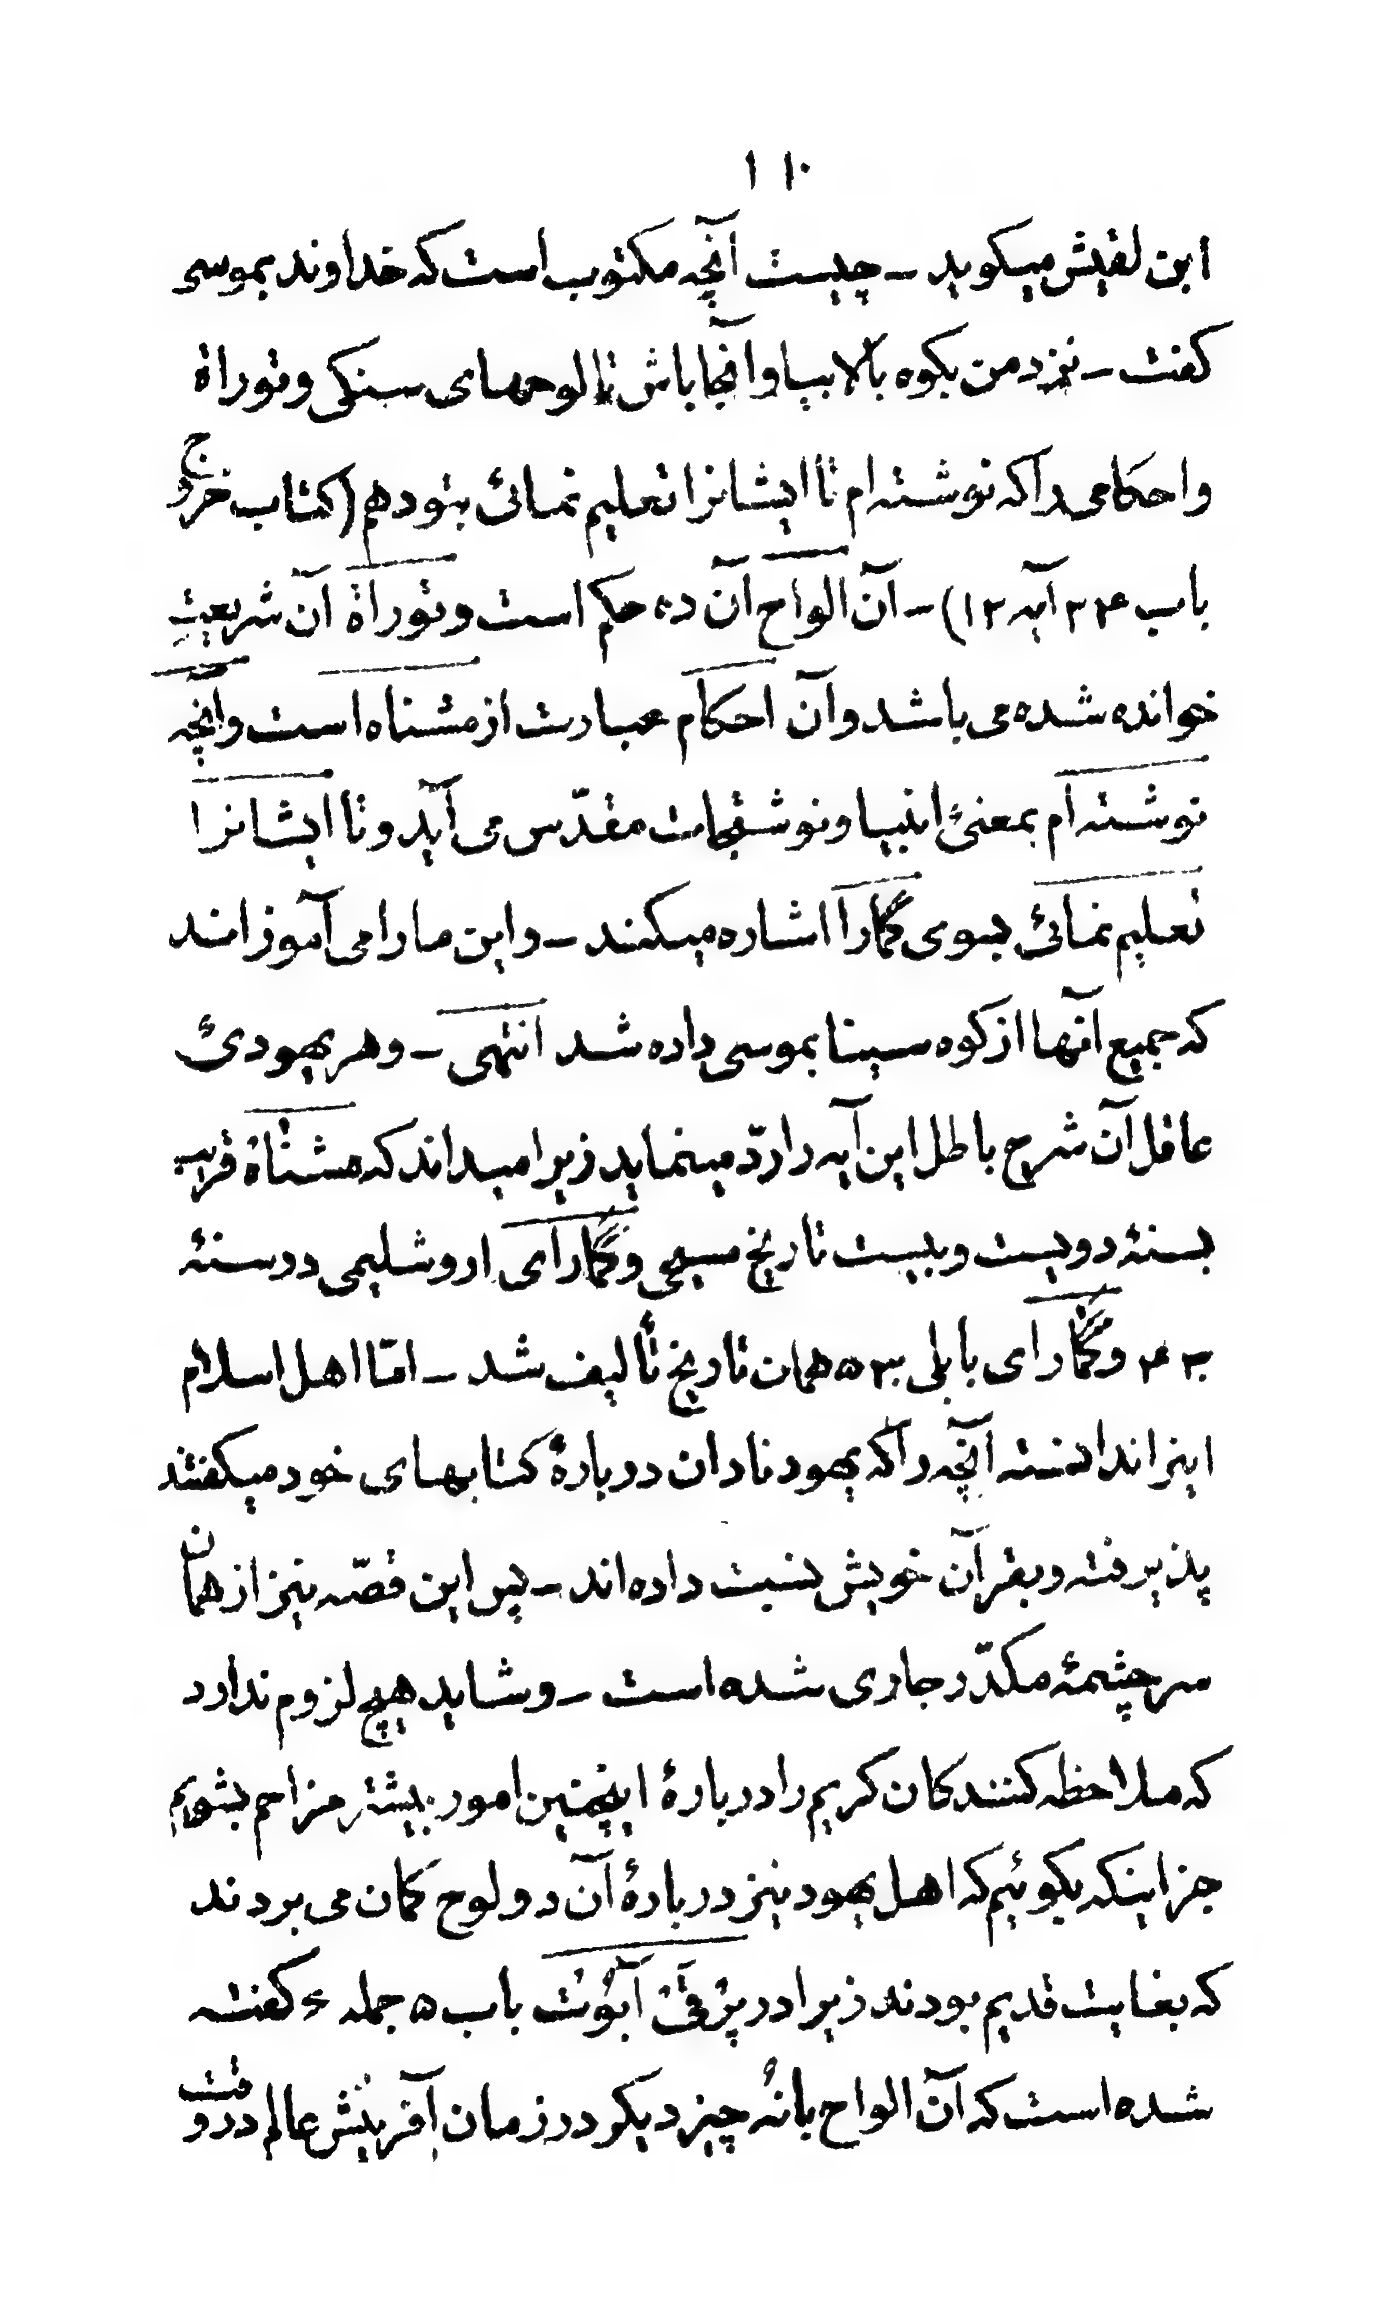 ۱۱۰
ابن لقیش میکوید – چیست آنچه مکتوب است که خداوند بموسی
کفت – نزد من بکوه بالا بیا و آنجا باش تا لوحهای سنکی و توراة
و احکامی را که نوشته ام تا ایشانرا تعلیم نمائی بتو دهم (کتاب خروج
باب ۲۴ آیه ۱۲) – آن الواح آن ده حکم است و توراة آن شریعتِ
خوانده شده می باشد و آن احکام عبارت از مشناه است و آنچه
نوشته ام بمعنیٔ انبیا و نوشتجات مقدّس می آید و تا ایشانرا
تعلیم نمائی بسوی گمارا اشاره میکند – و این ما را می آموزاند
که جمیع آنها از کوه سینا بموسی داده شد انتهی – و هر یهودیٔ
عاقل آن شرح باطل این آیه را ردّ مینماید زیرا میداند که مشناة قریب
بسنهٔ دویست و بیست تاریخ مسیحی و گمارای اروشلیمی در سنهٔ
۴۳۰ و گمارای بابلی ۵۳۰ همان تاریخ تألیف شد – امّا اهل اسلام
اینرا ندانسته آنچه را که یهود نادان دربارهٔ کتابهای خود میکفتند
پذیرفته و بقرآن خویش نسبت داده اند – پس این قصّه نیز از همان
سرچشمهٔ مکدّر جاری شده است – و شاید هیچ لزوم ندارد
که ملاحظه کنندکان کریم را دربارهٔ اینچنین امور بیشتر مزاحم بشویم
جز اینکه بکوئیم که اهل یهود نیز دربارهٔ آن دو لوح کمان می بردند
که بغایت قدیم بودند زیرا در پِرْقِیْ آبُوْتْ باب ۵ جمله ۶ کفته
شده است که آن الواح با نُه چیز دیکر در زمان آفرینش عالم در وقت